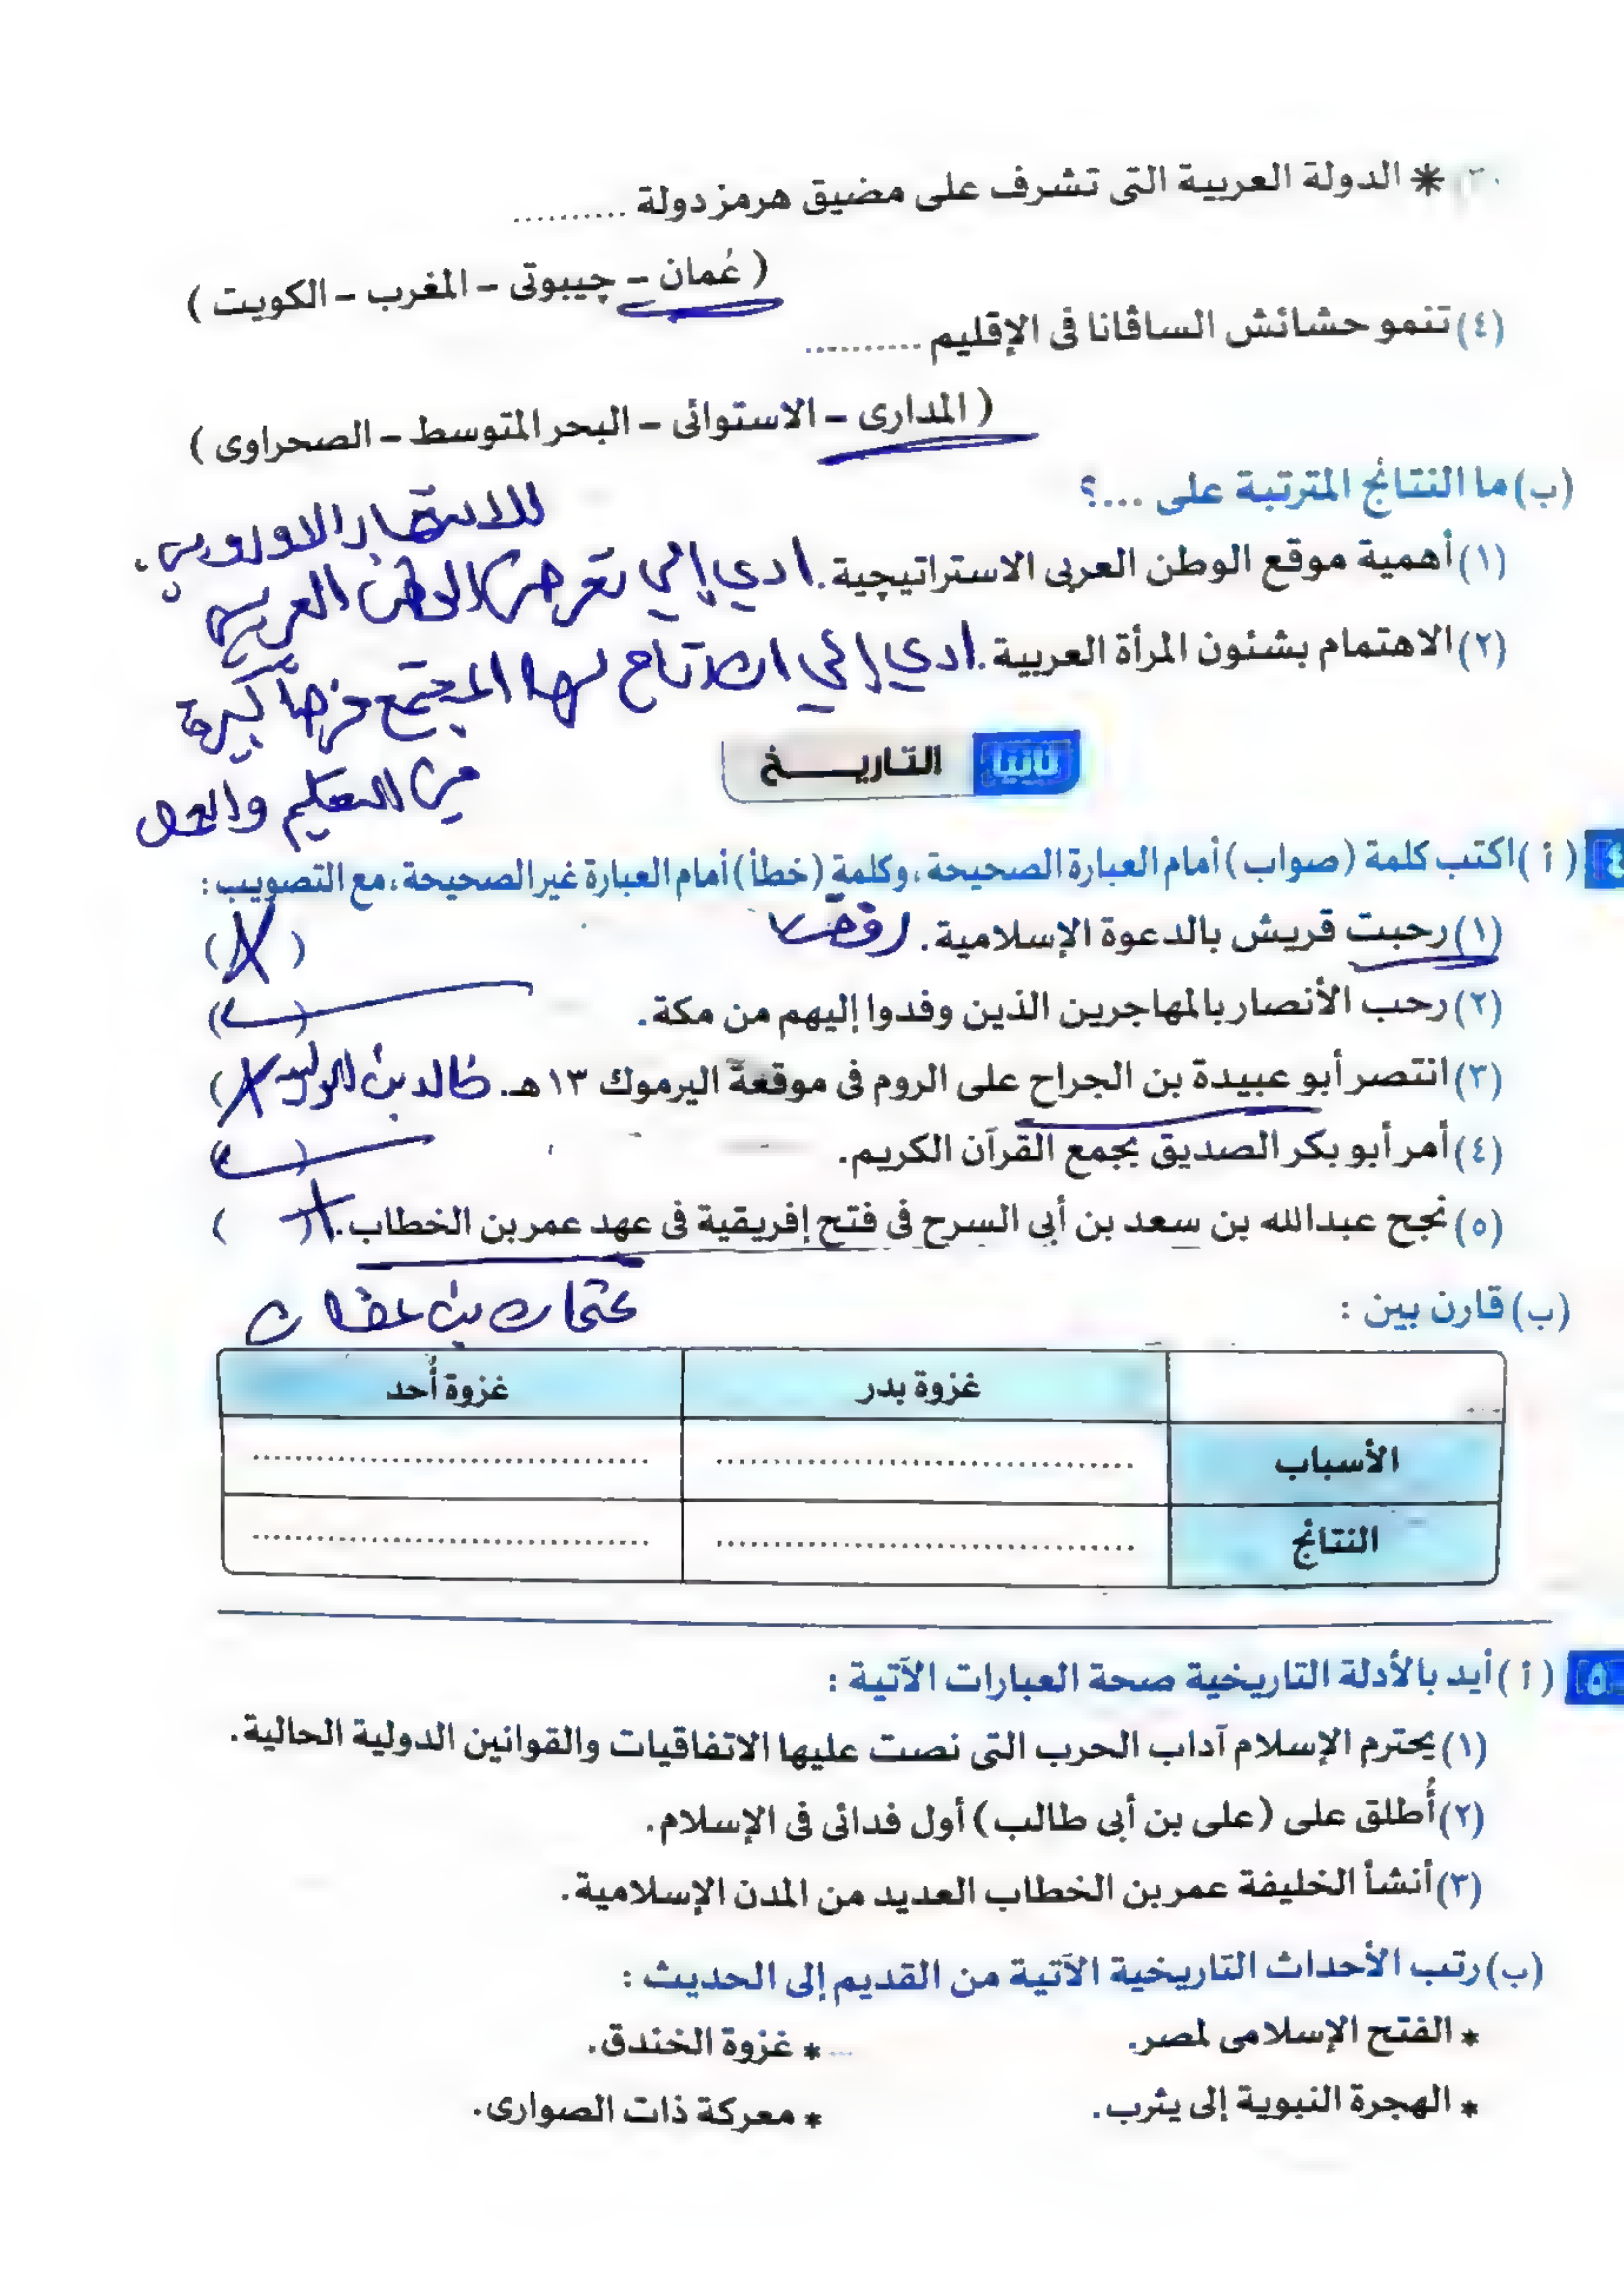 * الدولة العربية التى تشرف على مضيق هرمز دولة ..........
( عُمان – چيبوتى – المغرب – الكويت )
(٤) تنمو حشائش الساڤانا فى الإقليم ..........
( المدارى – الاستوائى – البحر المتوسط – الصحراوى )
(ب) ما النتائج المترتبة على ...؟
للاستعمار الاوروبي.
(١) أهمية موقع الوطن العربى الاستراتيچية. ادي إلي تعرض الوطن العربي
(٢) الاهتمام بشئون المرأة العربية. ادي إلي ان اتاح لها المجتمع فرصاً كبيرة
من التعليم والعمل
ثانيا التاريــــخ
٤ (أ) اكتب كلمة (صواب) أمام العبارة الصحيحة، وكلمة (خطأ) أمام العبارة غير الصحيحة، مع التصويب :
(١) رحبت قريش بالدعوة الإسلامية. رفضت (X)
(٢) رحب الأنصار بالمهاجرين الذين وفدوا إليهم من مكة. (✓)
(٣) انتصر أبو عبيدة بن الجراح على الروم فى موقعة اليرموك ١٣ هـ. خالد بن الوليد (X)
(٤) أمر أبو بكر الصديق بجمع القرآن الكريم. (✓)
(٥) نجح عبدالله بن سعد بن أبى السرح فى فتح إفريقية فى عهد عمر بن الخطاب. (X)
عثمان بن عفان
(ب) قارن بين :
غزوة بدر غزوة أُحد
الأسباب .......................................... ..........................................
النتائج .......................................... ..........................................
٥ (أ) أيد بالأدلة التاريخية صحة العبارات الآتية :
(١) يحترم الإسلام آداب الحرب التى نصت عليها الاتفاقيات والقوانين الدولية الحالية.
(٢) أُطلق على (على بن أبى طالب) أول فدائى فى الإسلام.
(٣) أنشأ الخليفة عمر بن الخطاب العديد من المدن الإسلامية.
(ب) رتب الأحداث التاريخية الآتية من القديم إلى الحديث :
* الفتح الإسلامى لمصر. * غزوة الخندق.
* الهجرة النبوية إلى يثرب. * معركة ذات الصوارى.